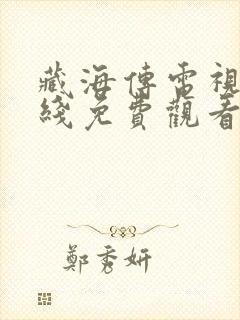 藏海傳電視
綫免費觀看
鄭秀妍